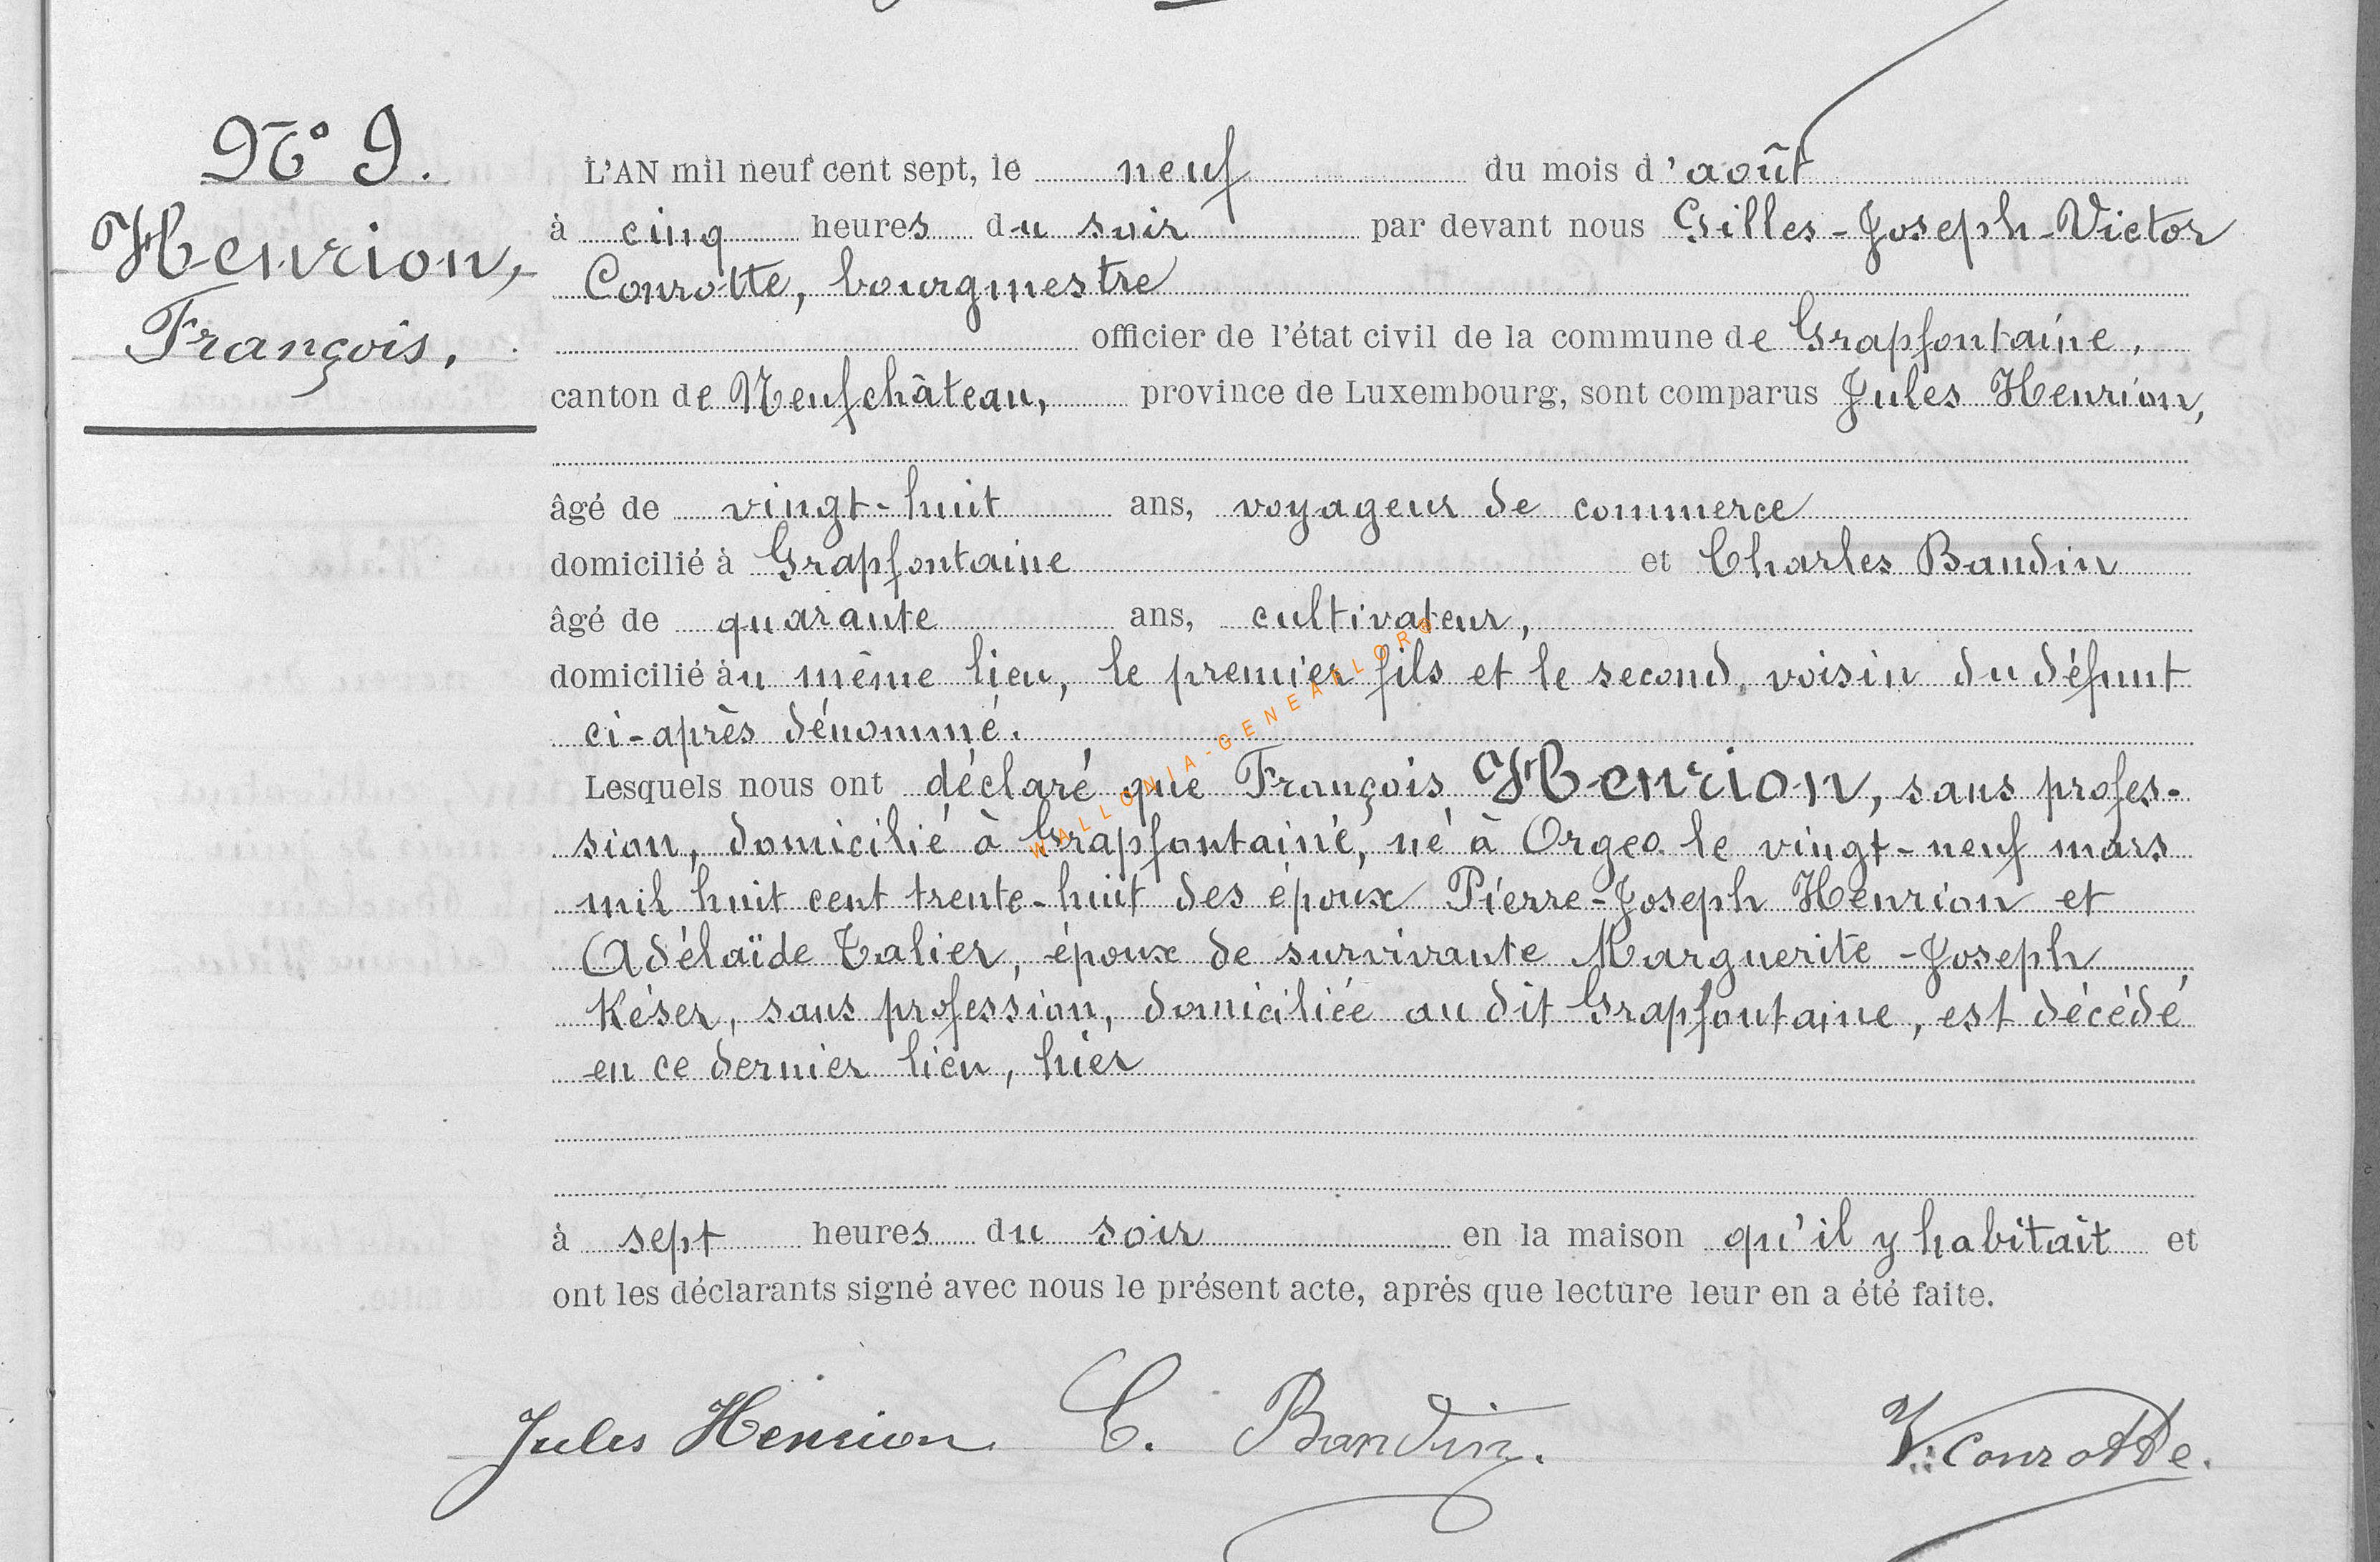 N° 9.
Henrion,
François.
L'AN mil neuf cent sept, le neuf du mois d'août
à cinq heures du soir par devant nous Gilles-Joseph-Victor
Conrotte, bourgmestre
officier de l'état civil de la commune de Grapfontaine,
canton de Neufchâteau, province de Luxembourg, sont comparus Jules Henrion,
âgé de vingt-huit ans, voyageur de commerce
domicilié à Grapfontaine et Charles Baudin
âgé de quarante ans, cultivateur,
domicilié àu même lieu, le premier fils et le second, voisin du défunt
ci-après dénommé.
Lesquels nous ont déclaré que François Henrion, sans profes-
sion, domicilié à Grapfontaine, né à Orgeo le vingt-neuf mars
mil huit cent trente-huit des époux Pierre-Joseph Henrion et
Adélaïde Talier, époux de survivante Marguerite-Joseph
Késer, sans profession, domiciliée au dit Grapfontaine, est décédé
en ce dernier lieu, hier
à sept heures du soir en la maison qu'il y habitait et
ont les déclarants signé avec nous le présent acte, après que lecture leur en a été faite.
Jules Henrion C. Baudin. V. Conrotte.
WALLONIA-GENEAFLOR®